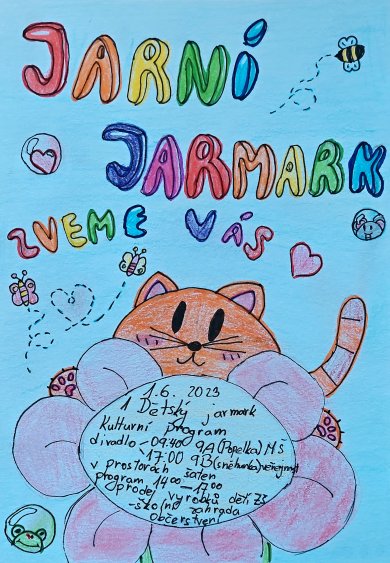 JARNÍ
JARMARK
ZVEME VÁS
1.6. 2023
1 Dětský jarmark
Kulturní program
divadlo - 09.40 9A (Popelka) MŠ
- 17.00 9B (sněhurka) veřejnost
v prostorách šaten
program 14 00 - 17 00
prodej výrobků dětí ZŠ
- školní zahrada
občerstvení